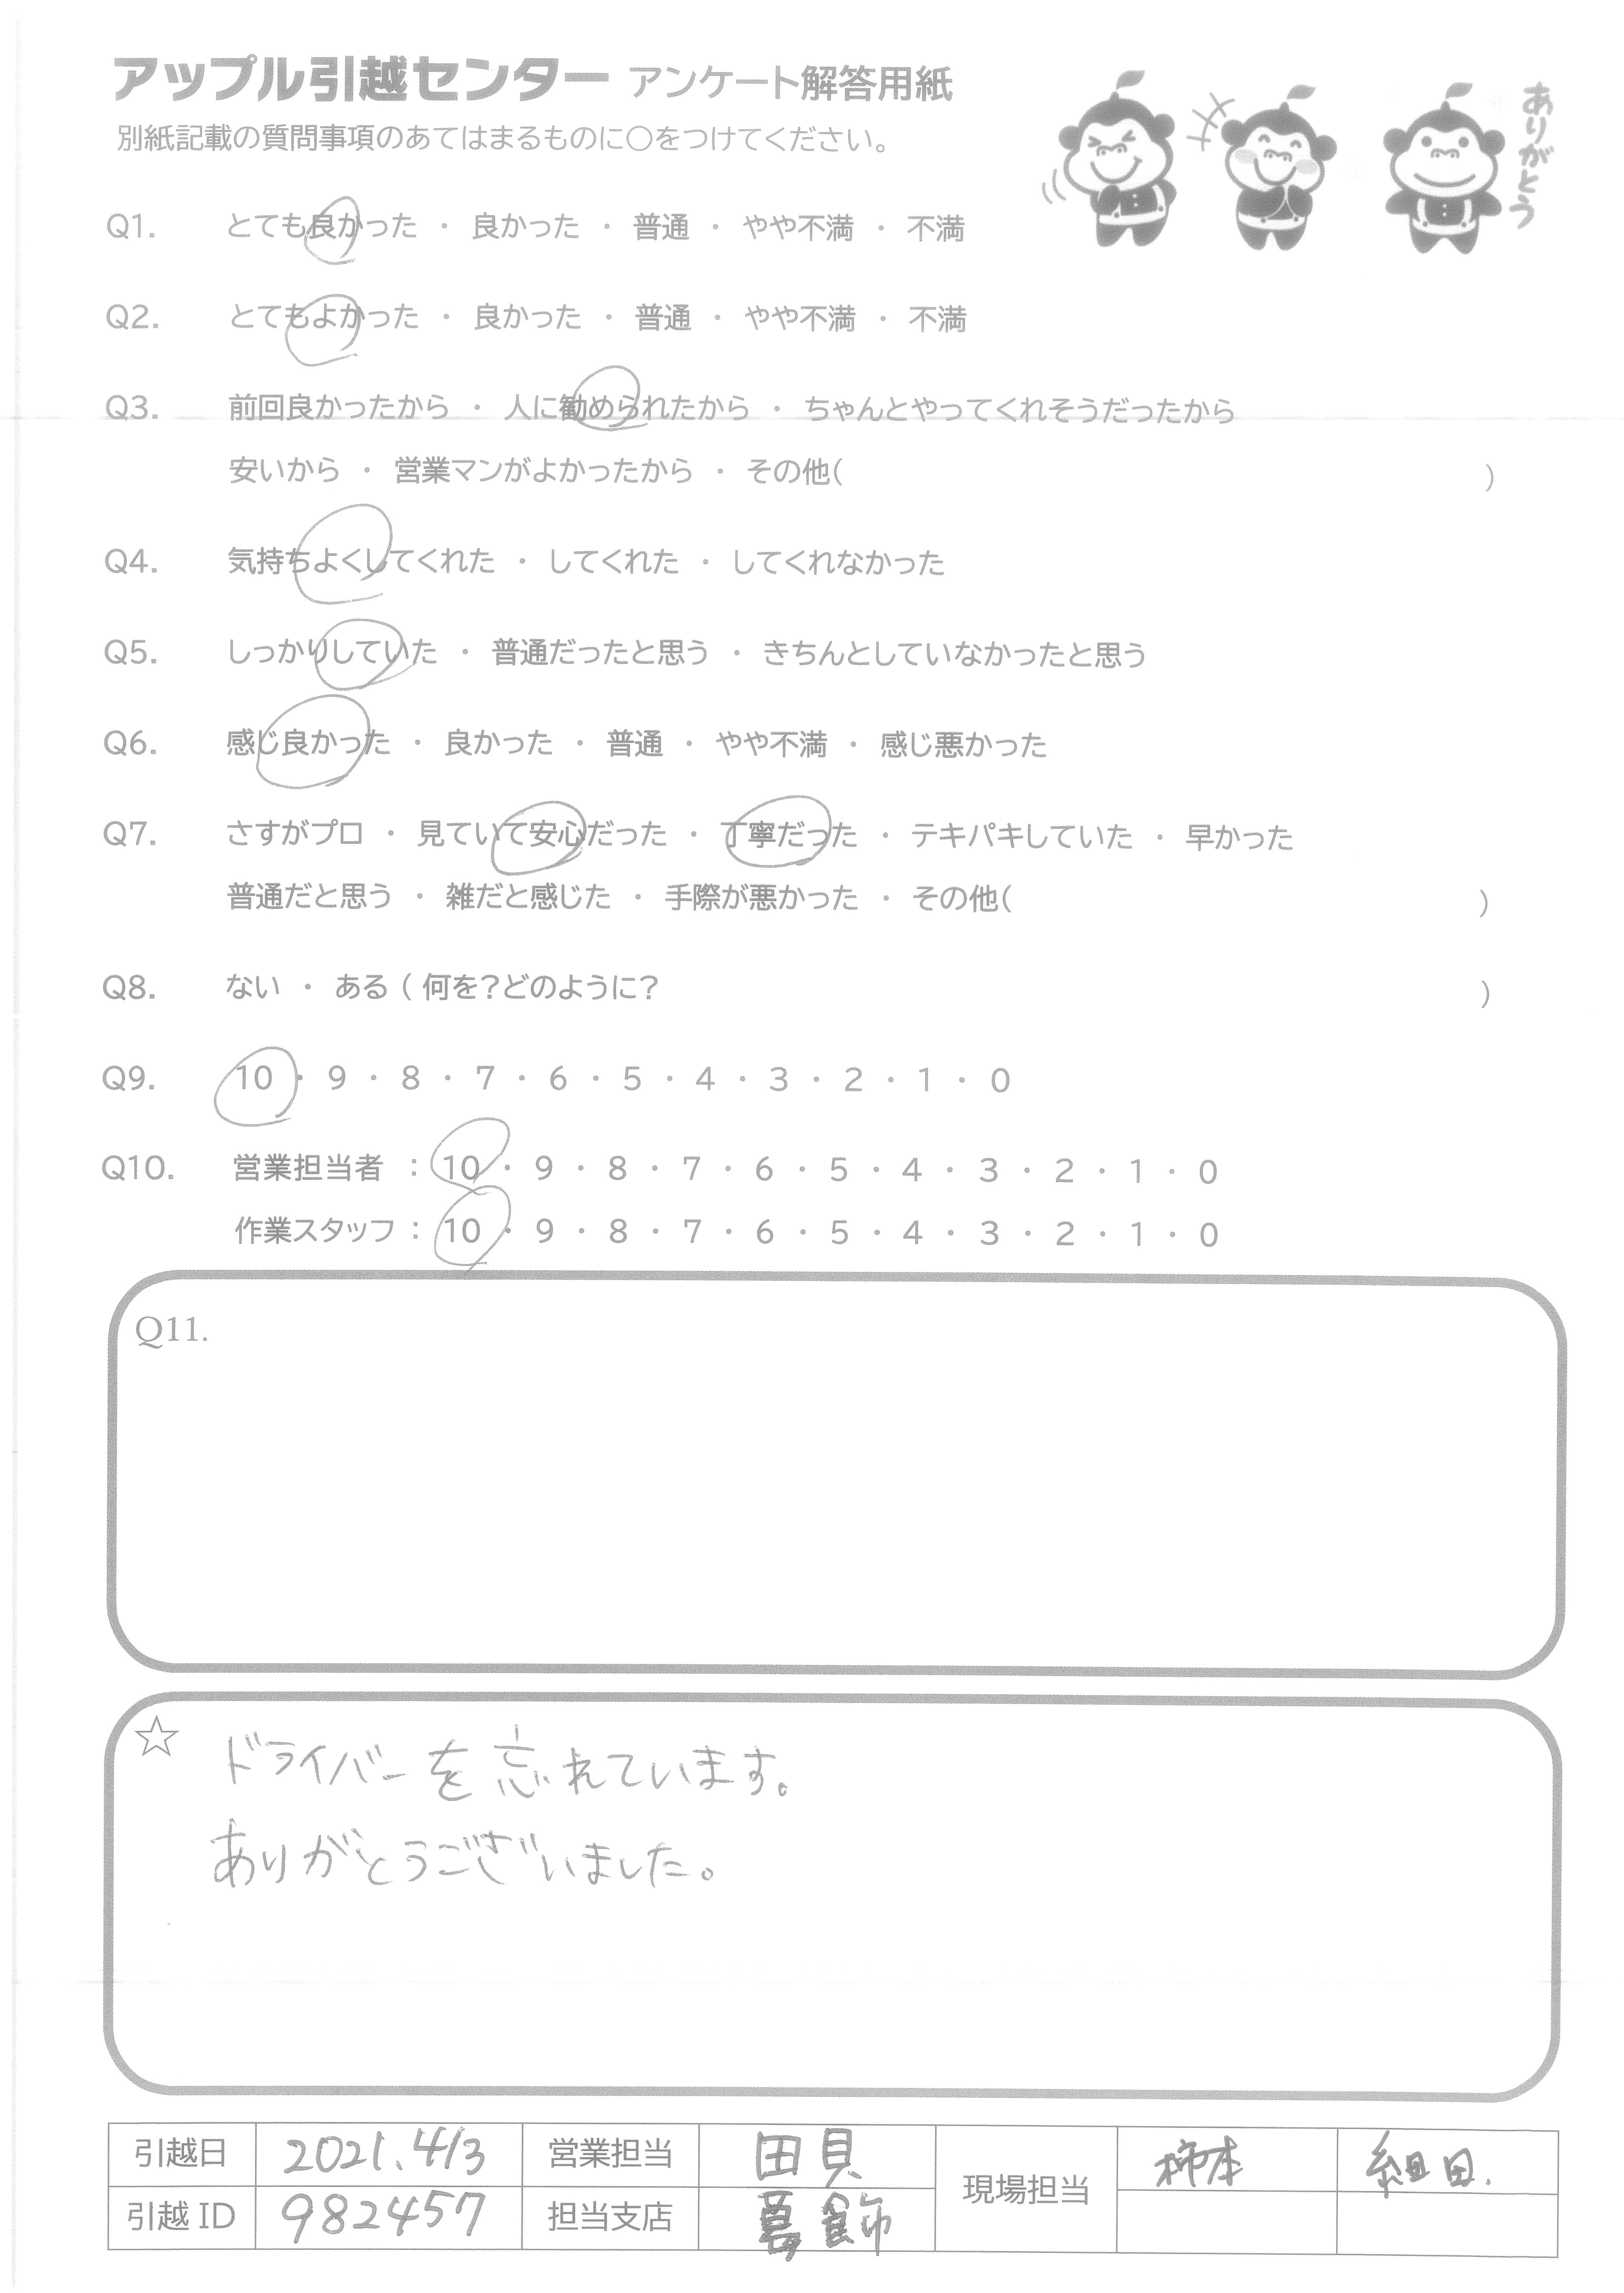 アップル引越センター アンケート解答用紙
別紙記載の質問事項のあてはまるものに○をつけてください。
ありがとう
Q1. とても良かった ・ 良かった ・ 普通 ・ やや不満 ・ 不満
Q2. とてもよかった ・ 良かった ・ 普通 ・ やや不満 ・ 不満
Q3. 前回良かったから ・ 人に勧められたから ・ ちゃんとやってくれそうだったから
安いから ・ 営業マンがよかったから ・ その他( )
Q4. 気持ちよくしてくれた ・ してくれた ・ してくれなかった
Q5. しっかりしていた ・ 普通だったと思う ・ きちんとしていなかったと思う
Q6. 感じ良かった ・ 良かった ・ 普通 ・ やや不満 ・ 感じ悪かった
Q7. さすがプロ ・ 見ていて安心だった ・ 丁寧だった ・ テキパキしていた ・ 早かった
普通だと思う ・ 雑だと感じた ・ 手際が悪かった ・ その他( )
Q8. ない ・ ある ( 何を?どのように? )
Q9. 10 ・ 9 ・ 8 ・ 7 ・ 6 ・ 5 ・ 4 ・ 3 ・ 2 ・ 1 ・ 0
Q10. 営業担当者 : 10 ・ 9 ・ 8 ・ 7 ・ 6 ・ 5 ・ 4 ・ 3 ・ 2 ・ 1 ・ 0
作業スタッフ : 10 ・ 9 ・ 8 ・ 7 ・ 6 ・ 5 ・ 4 ・ 3 ・ 2 ・ 1 ・ 0
Q11.
☆ ドライバーを忘れています。
ありがとうございました。
引越日 2021.4/3 営業担当 田貝 現場担当 柿本 組田.
引越 ID 982457 担当支店 葛飾